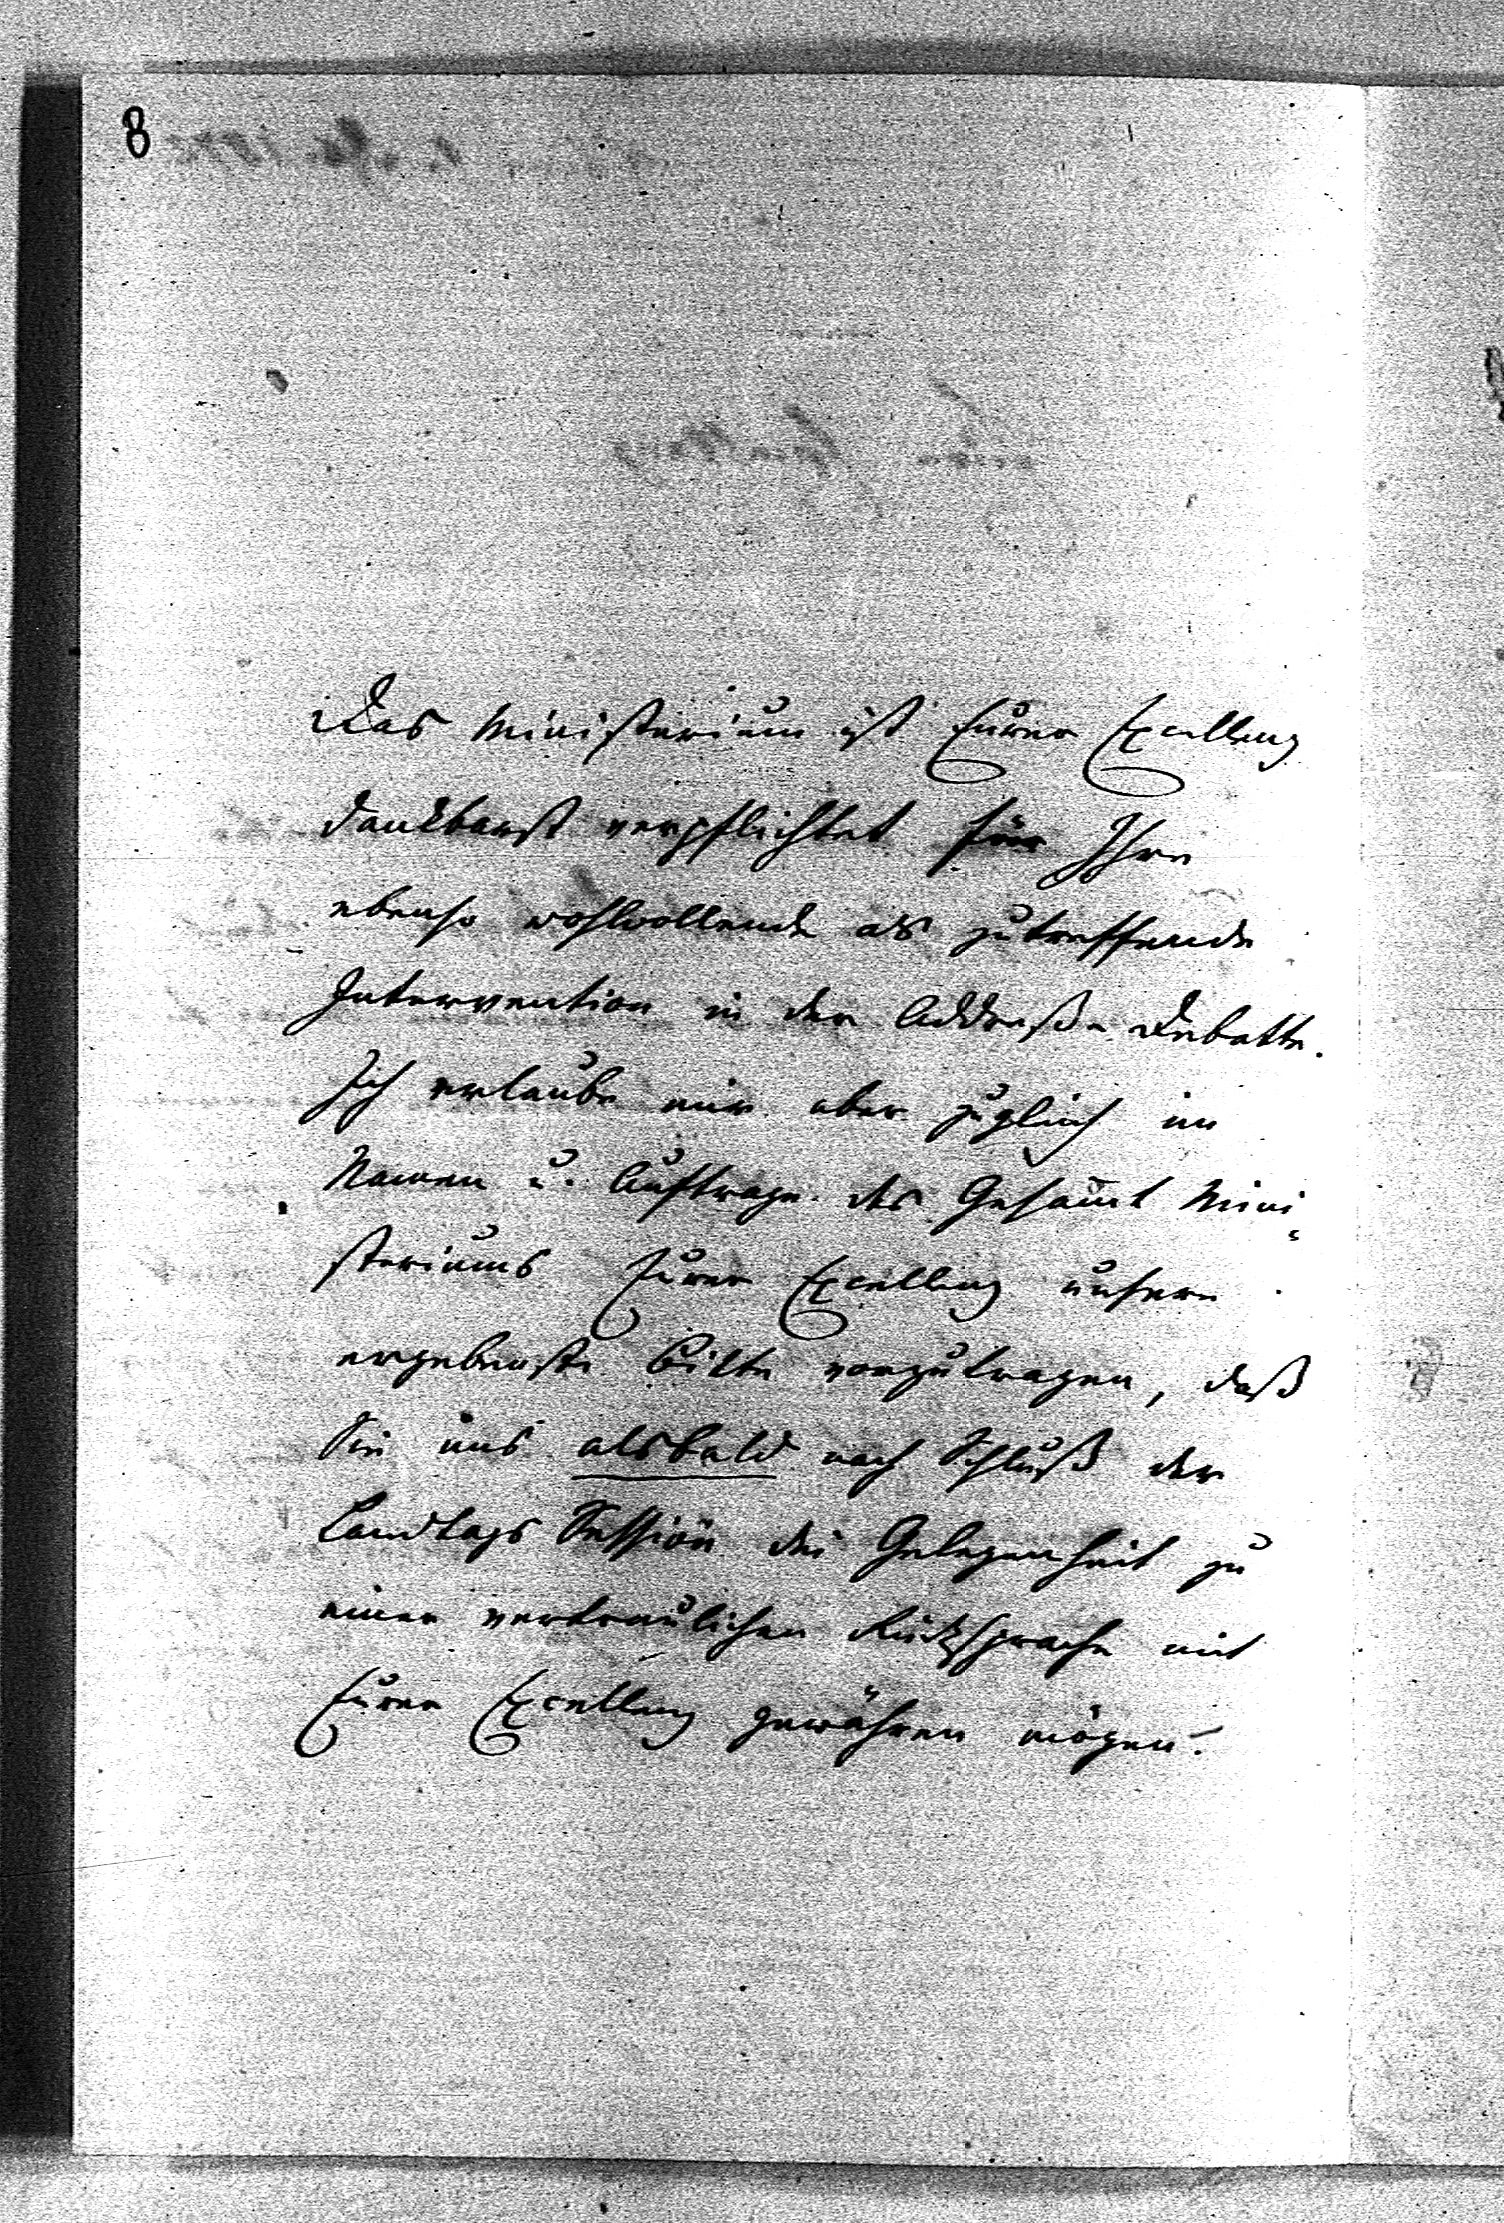 8
Das Ministerium ist Eurer Excellenz
dankbarst verpflichtet für Ihre
ebenso wohlwollende als zutreffende
Intervention in der Addreß-Debatte.
Ich erlaube mir aber zugleich im
Namen u. Auftrage des Gesam̄t Mini-
steriums Eurer Excellenz unsere
ergebenste Bitte vorzutragen, daß
Sie uns alsbald nach Schluß der
Landtags Session die Gelegenheit zu
einer vertraulichen Rücksprache mit
Eurer Excellenz gewähren mögen.